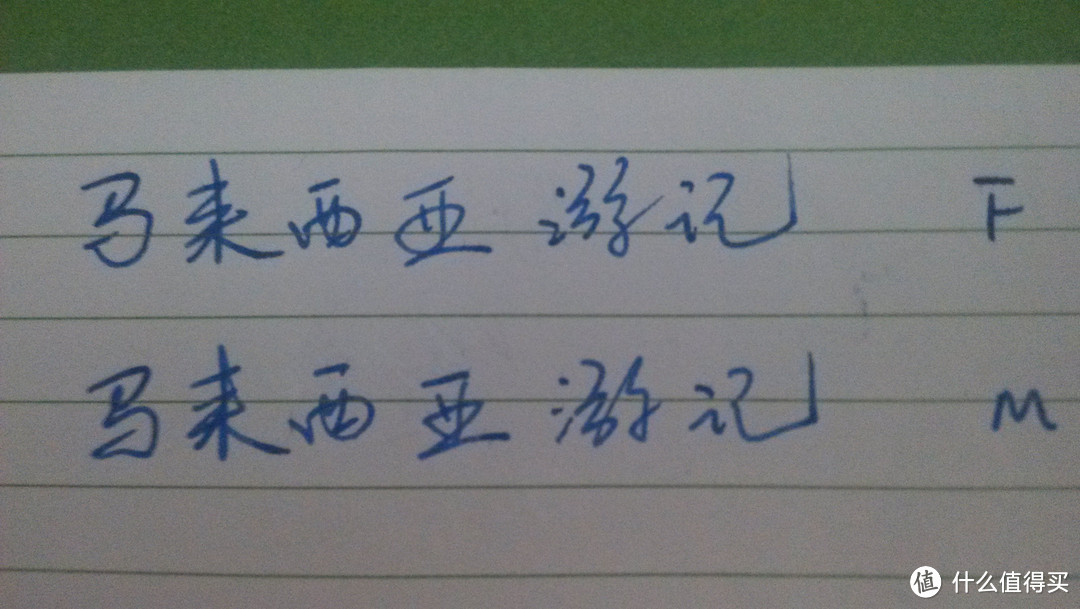 马来西亚游记 F
马来西亚游记 M
值 什么值得买